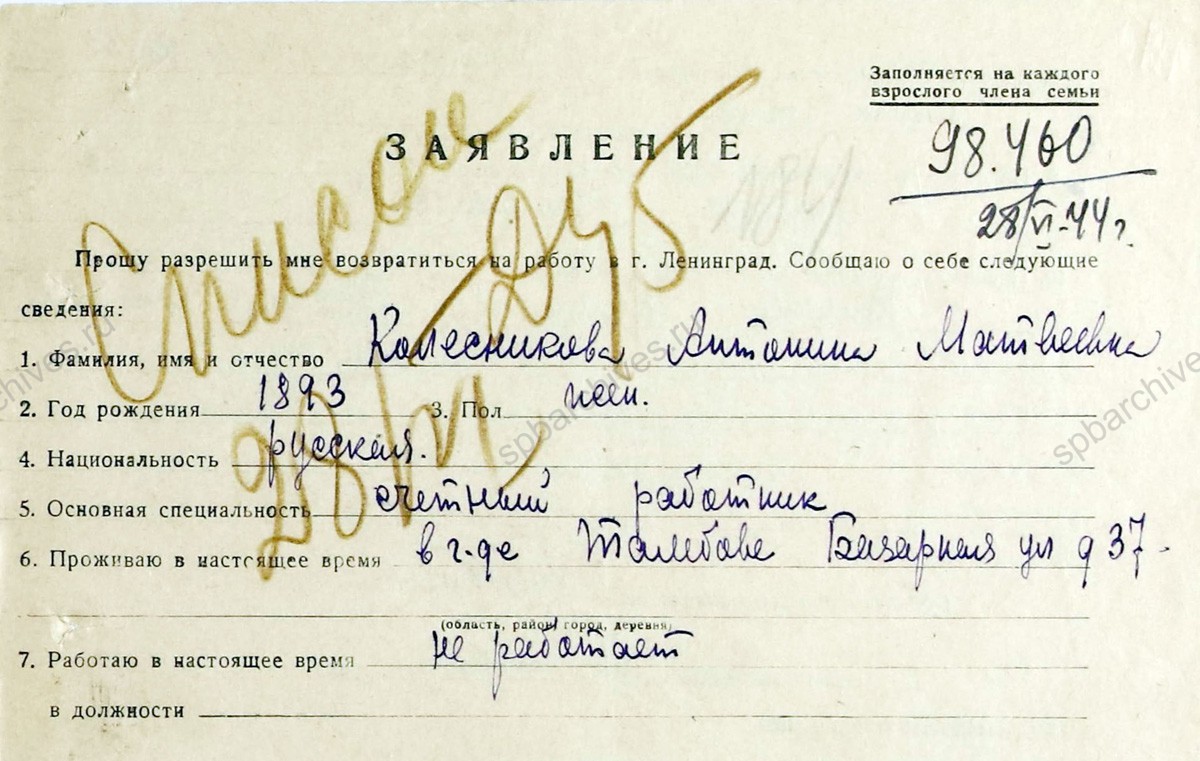 Заполняется на каждого
взрослого члена семьи
ЗАЯВЛЕНИЕ
98.460
28/VI-44 г.
184
Список
245
28/VI
Прошу разрешить мне возвратиться на работу в г. Ленинград. Сообщаю о себе следующие
сведения:
1. Фамилия, имя и отчество Колесникова Антонина Матвеевна
2. Год рождения 1893 3. Пол жен.
4. Национальность русская.
5. Основная специальность счетный работник
6. Проживаю в настоящее время в г-де Тамбове Базарная ул д 37.
(область, район, город, деревня)
7. Работаю в настоящее время не работает
в должности
spbarchives.ru
spbarchives.ru
spbarchives.ru